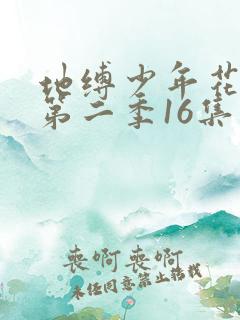 地缚少年花
第二季16集
丧啊丧啊
未经同意禁止转载